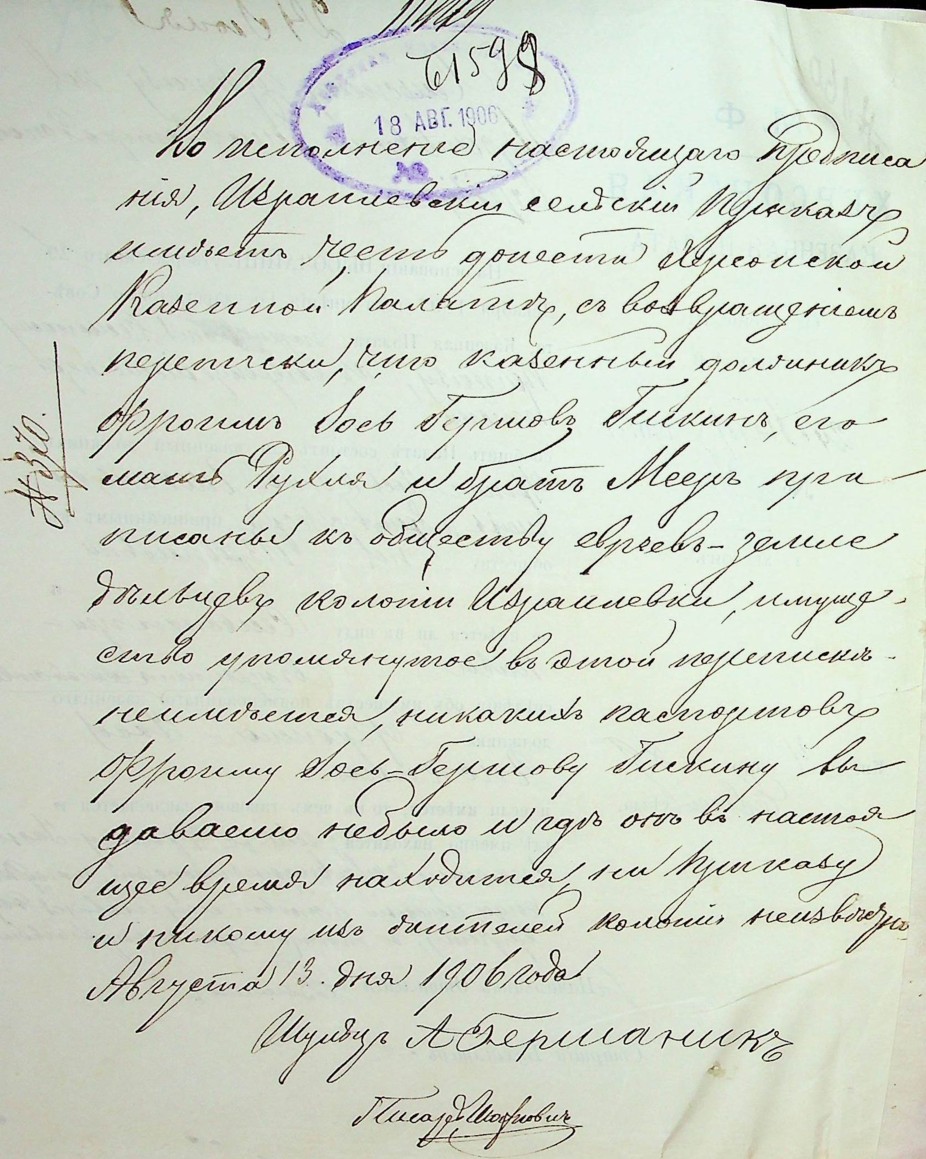 61599
18 АВГ. 1906
Во исполненіе настоящаго предписа
нія, Израилевскій сельскій Приказъ
имѣетъ честь донести Херсонской
Казенной Палатѣ, съ возвращеніемъ
переписки, что казенный должникъ
Фроимъ Іось Гершовъ Гискинъ, его
мать Рухля и братъ Меер при-
писаны къ обществу евреевъ-земле
дѣльцевъ колоніи Израилевки, имуще-
ство упомянутое въ этой перепискѣ-
неимѣется, никакихъ паспортовъ
Фроиму Іось-Гершову Гискину вы
даваемо небыло и гдѣ онъ въ настоя
щее время находится, ни Приказу
и никому изъ жителей колоніи неизвѣстно
Августа 13. дня 1906 года
Шульцъ А Германикъ
Писарь
№ 370.